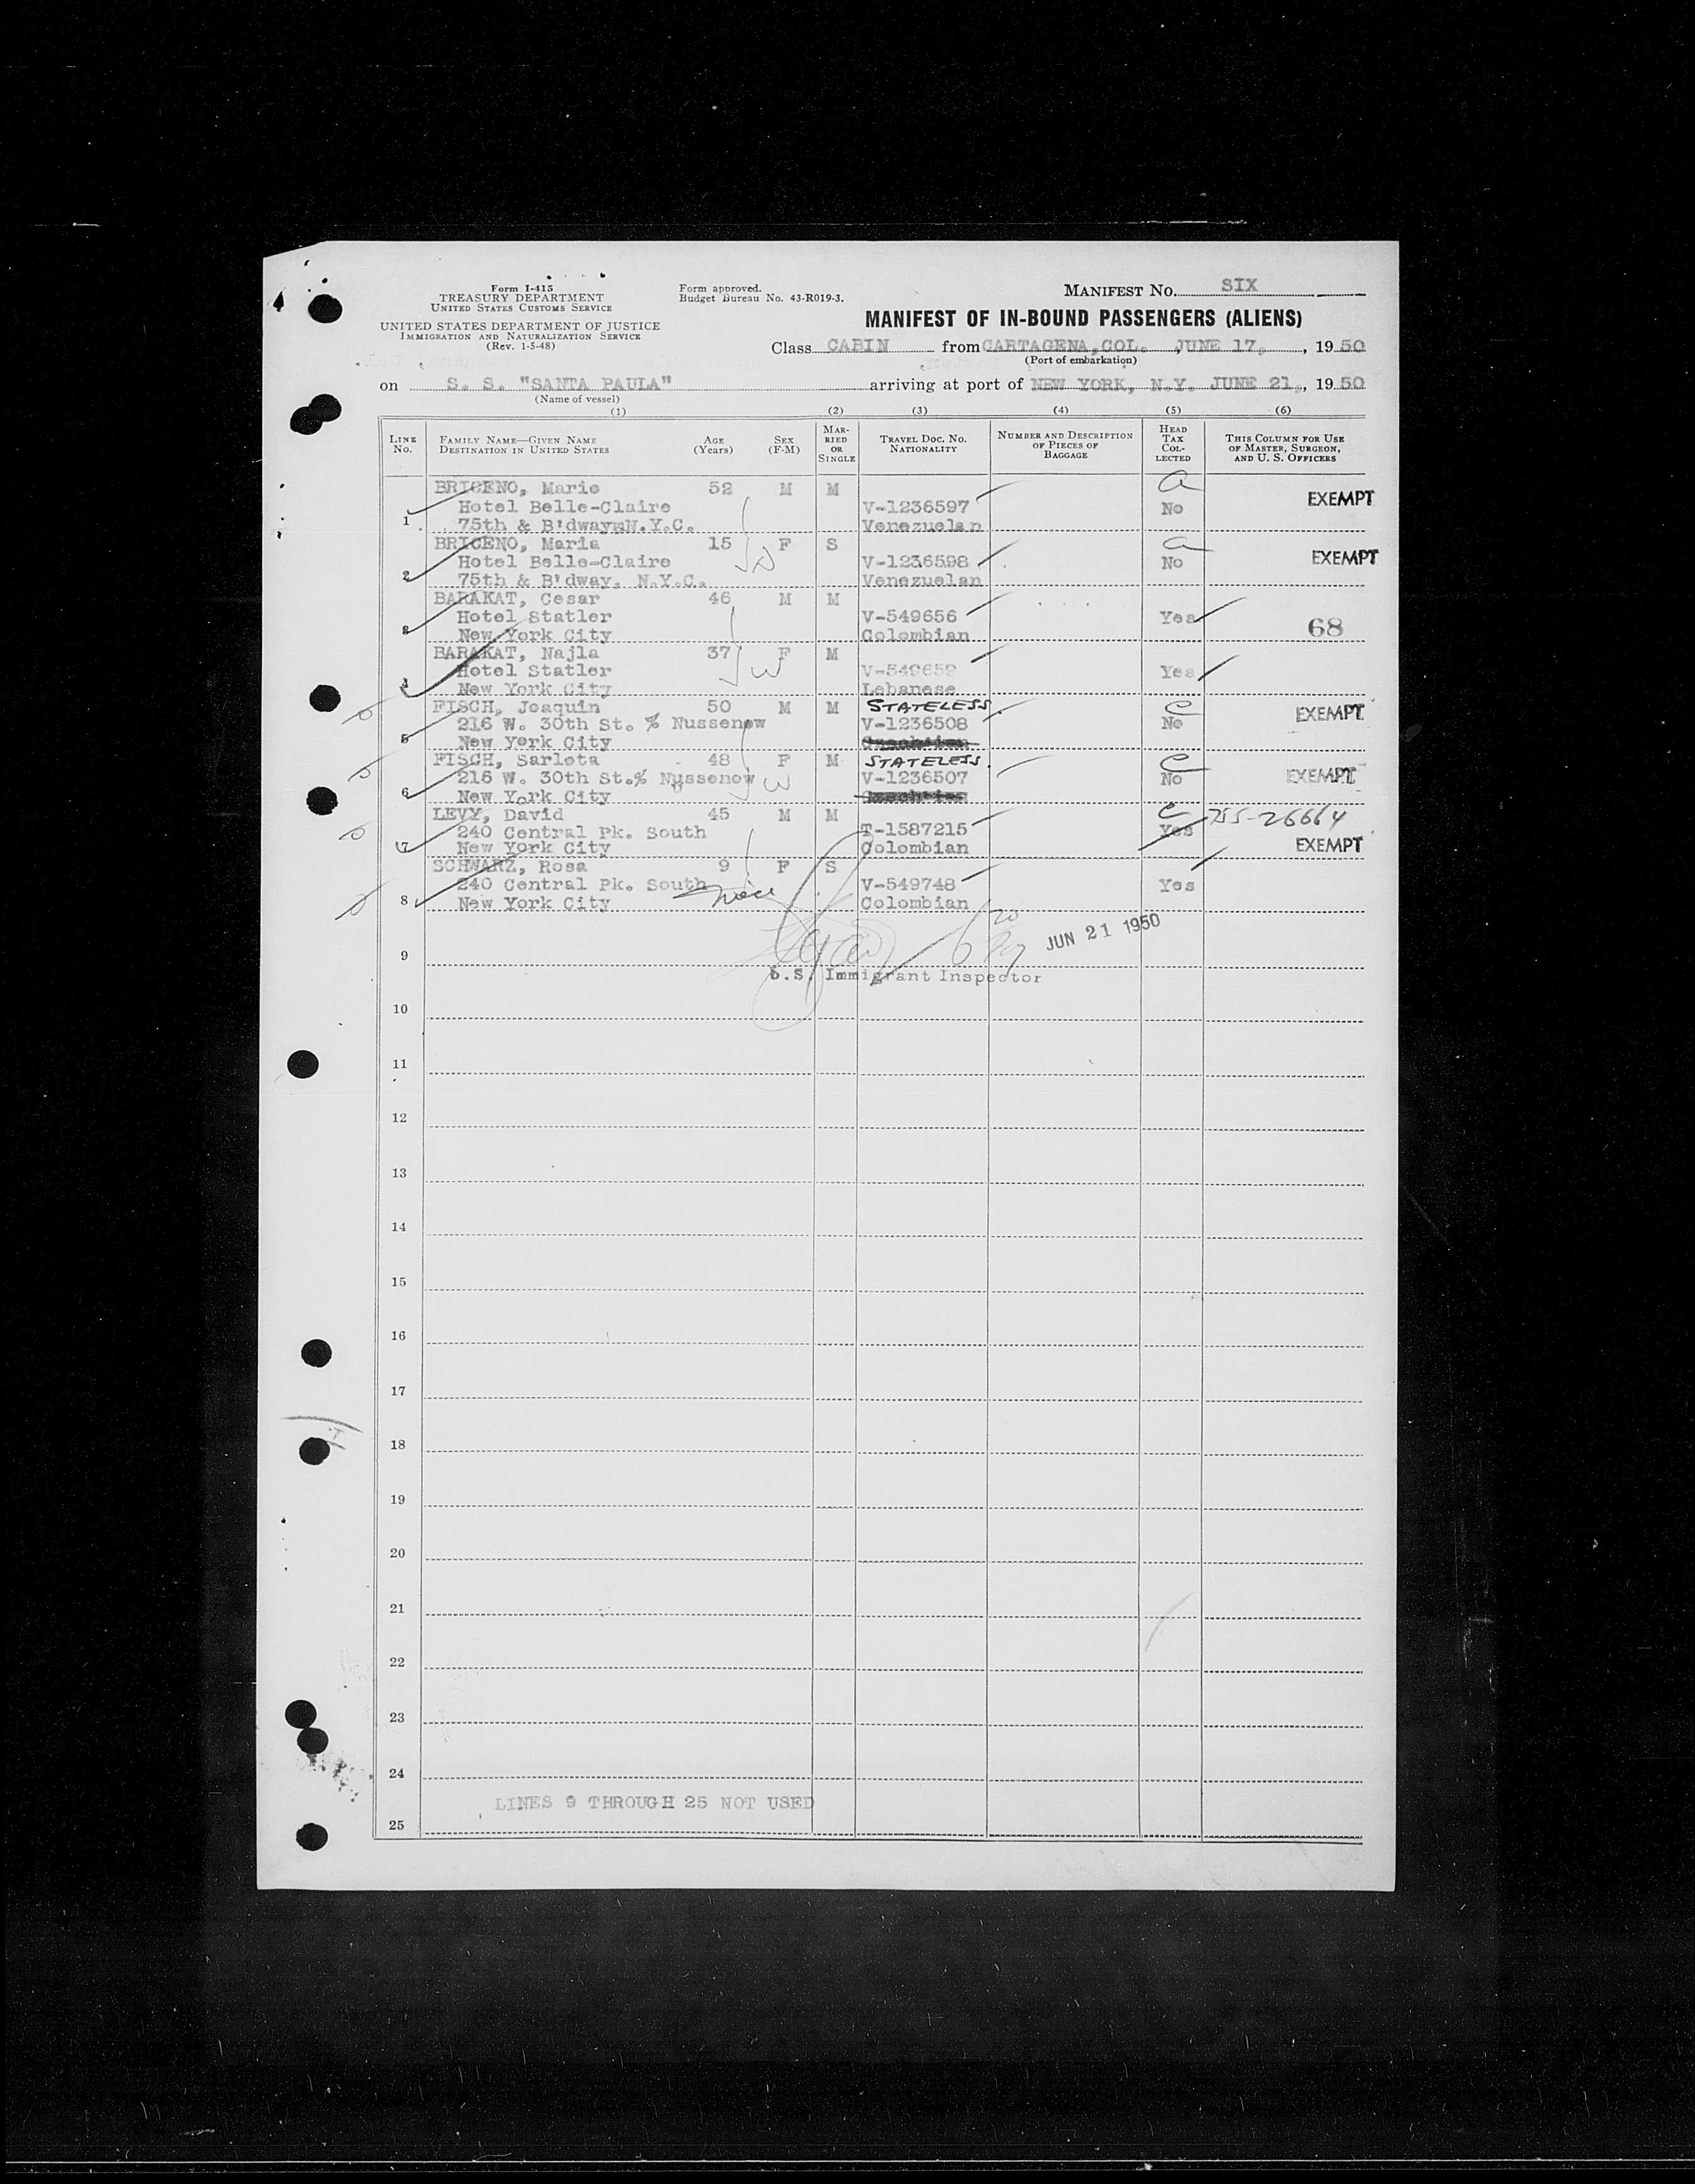 Form I-415
TREASURY DEPARTMENT
UNITED STATES CUSTOMS SERVICE
UNITED STATES DEPARTMENT OF JUSTICE
IMMIGRATION AND NATURALIZATION SERVICE
(Rev. 1-5-48)
Form approved.
Budget Bureau No. 43-R019-3.
MANIFEST NO. SIX
MANIFEST OF IN-BOUND PASSENGERS (ALIENS)
Class CABIN from CARTAGENA, COL. , JUNE 17, , 1950
(Port of embarkation)
on S. S. "SANTA PAULA" arriving at port of NEW YORK, N.Y. JUNE 21, , 1950
(Name of vessel)
(1) (2) (3) (4) (5) (6)
LINE NO. FAMILY NAME—GIVEN NAME DESTINATION IN UNITED STATES AGE (Years) SEX (F-M) MARRIED OR SINGLE TRAVEL DOC. NO. NATIONALITY NUMBER AND DESCRIPTION OF PIECES OF BAGGAGE HEAD TAX COLLECTED THIS COLUMN FOR USE OF MASTER, SURGEON, AND U. S. OFFICERS
BRICENO, Mario 52 M M
Hotel Belle-Claire V-1236597 No EXEMPT
1 75th & B'dway N.Y.C. Venezuelan
BRICENO, Maria 15 F S
Hotel Belle-Claire V-1236598 No EXEMPT
2 75th & B'dway. N.Y.C. Venezuelan
BARAKAT, Cesar 46 M M
Hotel Statler V-549656 Yes
3 New York City Colombian 68
BARAKAT, Najla 37 F M W
Hotel Statler V-549659 Yes
4 New York City Lebanese
FISCH, Joaquin 50 M M STATELESS
216 W. 30th St. % Nussenow V-1236508 No EXEMPT
5 New York City
FISCH, Sarlota 48 F M STATELESS
216 W. 30th St.% Nussenow W V-1236507 No EXEMPT
6 New York City
LEVY, David 45 M M 755-26664
240 Central Pk. South T-1587215 Yes
7 New York City Colombian EXEMPT
SCHWARZ, Rosa 9 F S
240 Central Pk. South V-549748 Yes
8 New York City niece Colombian
JUN 21 1950
9
U.S. Immigrant Inspector
10
11
12
13
14
15
16
17
18
19
20
21
22
23
24
LINES 9 THROUGH 25 NOT USED
25